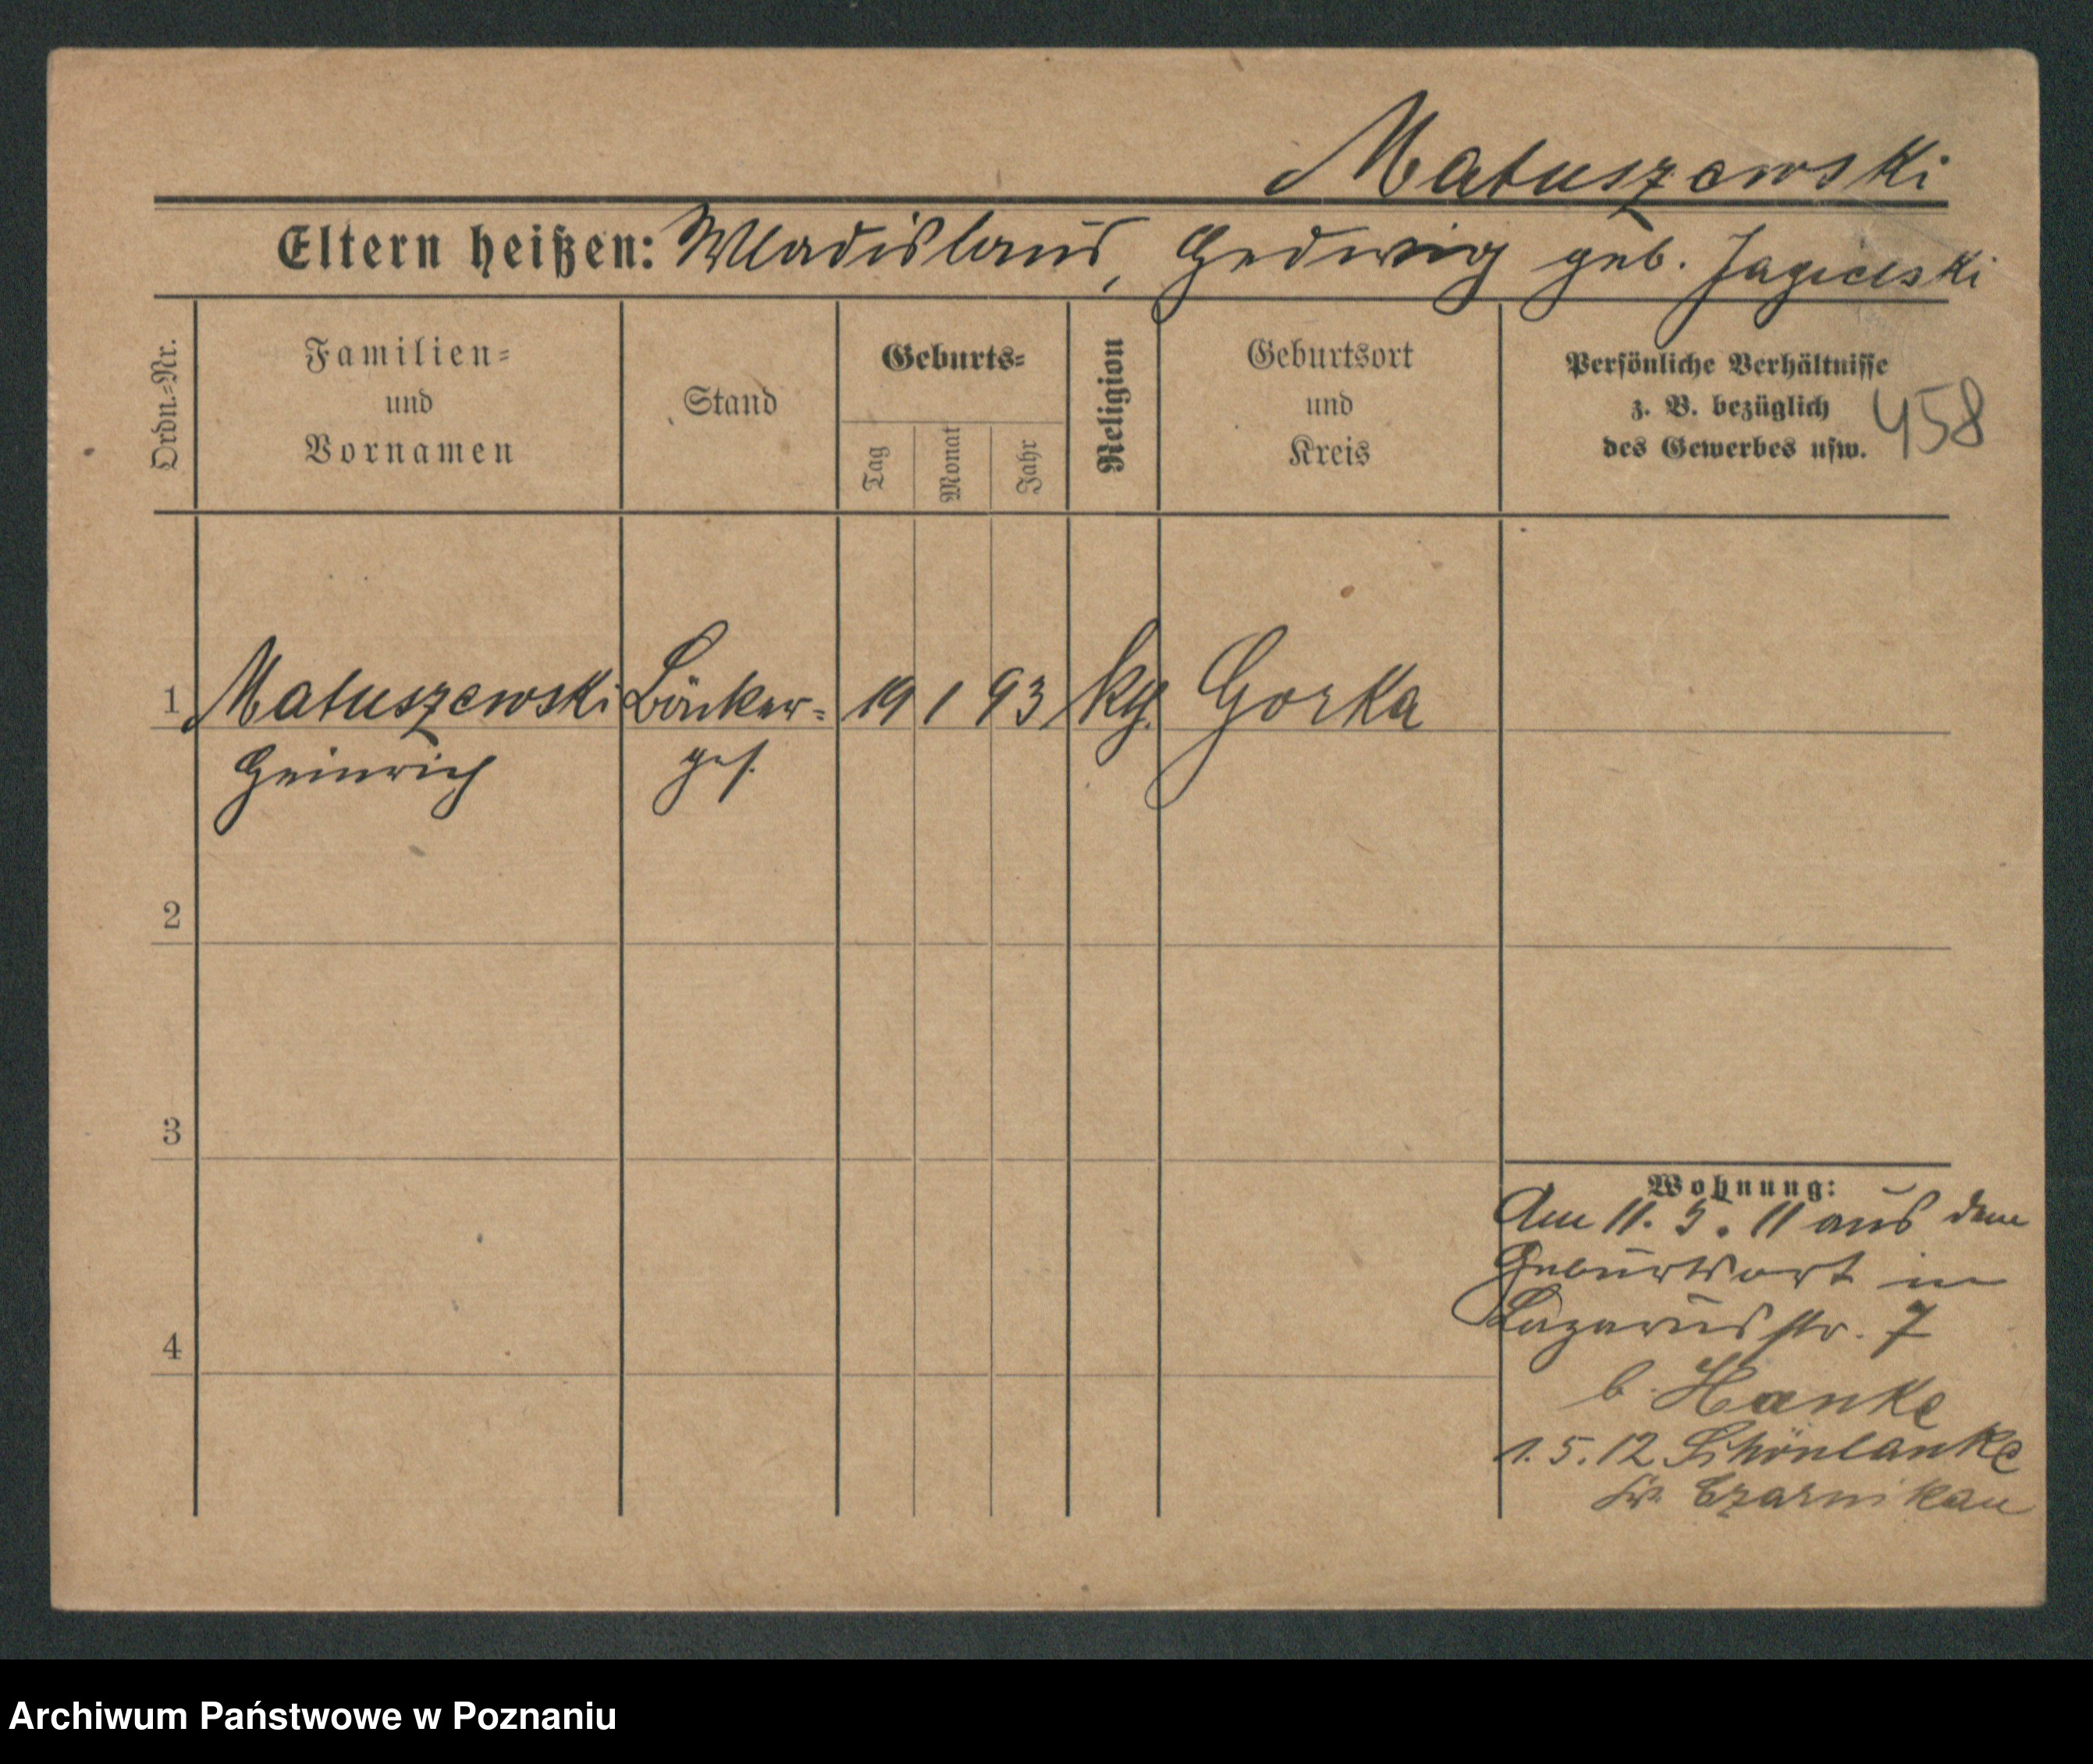 Matuszewski
Eltern heißen: Wladislaus, Hedwig geb. Jagielski
Ordn.-Nr.
Familien-
und
Vornamen
Stand
Geburts-
Tag
Monat
Jahr
Religion
Geburtsort
und
Kreis
Persönliche Verhältnisse
z. B. bezüglich
des Gewerbes usw.
458
1 Matuszewski Bäcker- 19 1 93 kg. Gorka
Heinrich ges.
2
3
4
Wohnung:
Am 11. 5. 11 aus dem
Geburtsort in
Lazarusstr. 7
b. Hanke
1. 5. 12 Schönlanke
Kr. Czarnikau
Archiwum Państwowe w Poznaniu